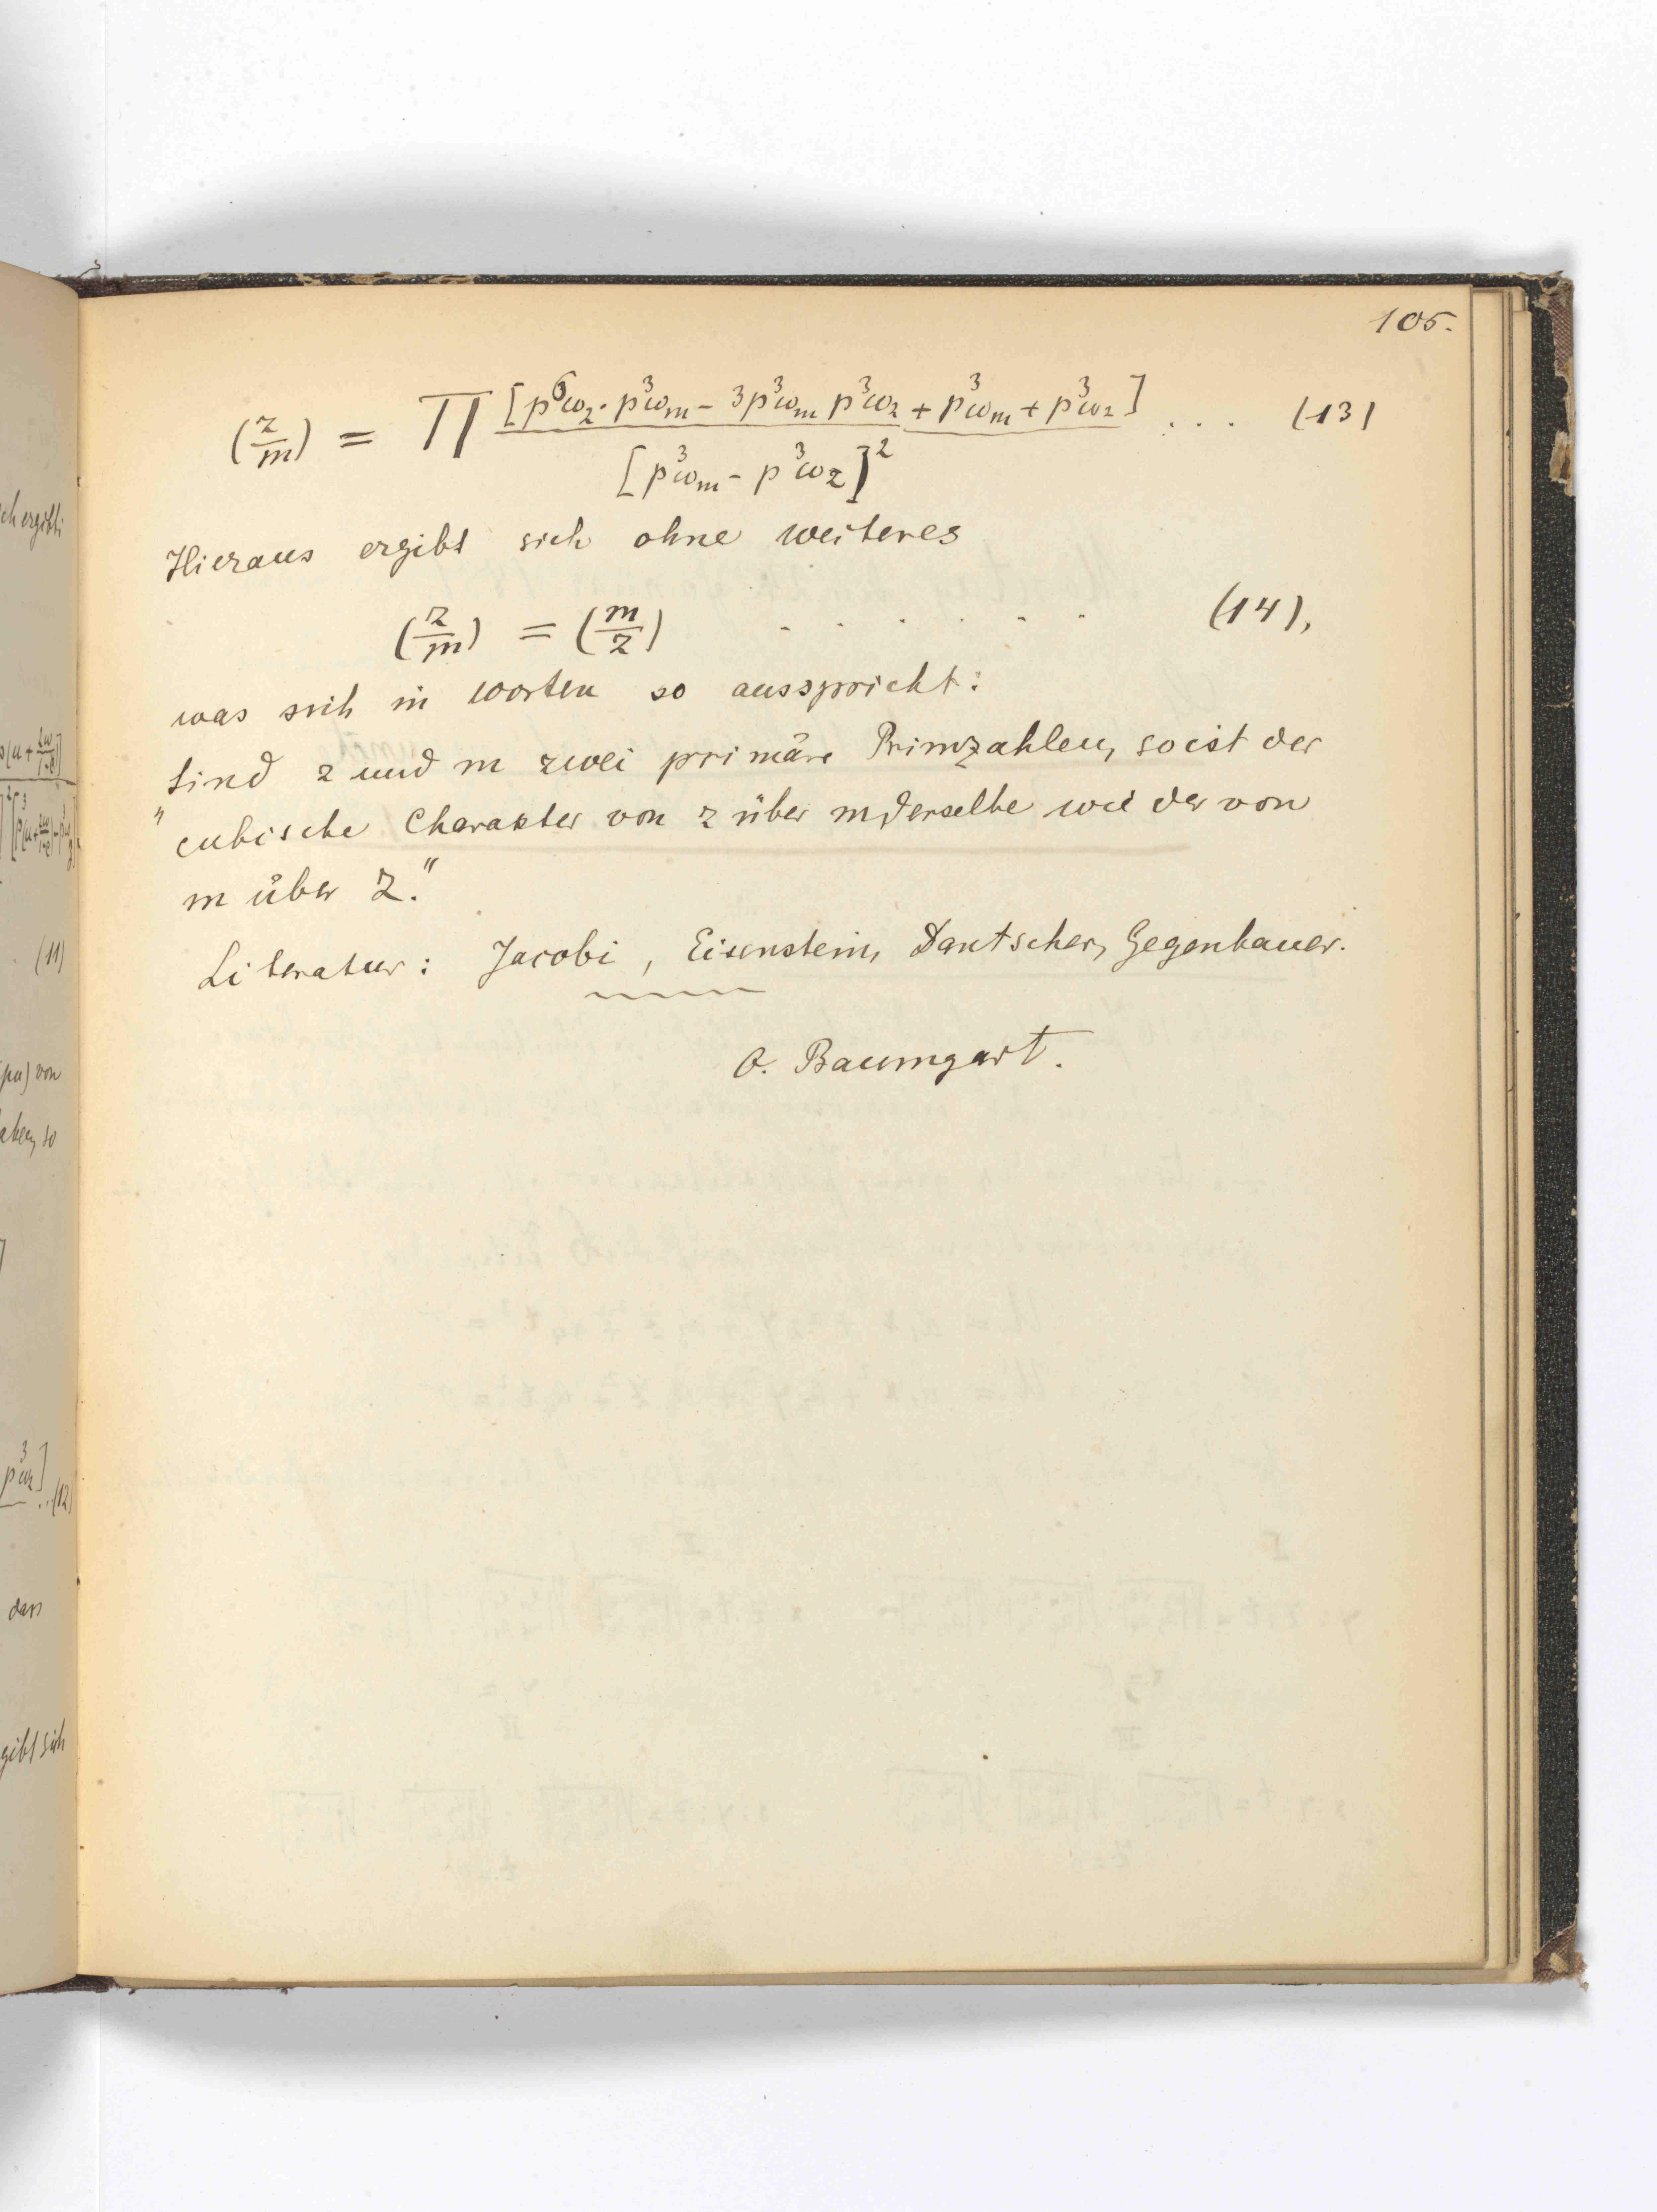 105.
(z/m) = Π [p⁶ω₂·p³ωₘ − 3p³ωₘ p³ω₂ + p³ωₘ + p³ω₂] / [p³ωₘ − p³ω₂]² . . . (13)
Hieraus ergibt sich ohne weiteres
(z/m) = (m/z) . . . . . . (14),
was sich in Worten so ausspricht:
"Sind z und m zwei primäre Primzahlen, so ist der
cubische Charakter von z über m derselbe wie der von
m über z."
Literatur: Jacobi, Eisenstein, Dantscher, Gegenbauer.
O. Baumgart.
ch ergibt
(11)
(pu) von
p³ω₂] ..(12)
dass
gibt sich